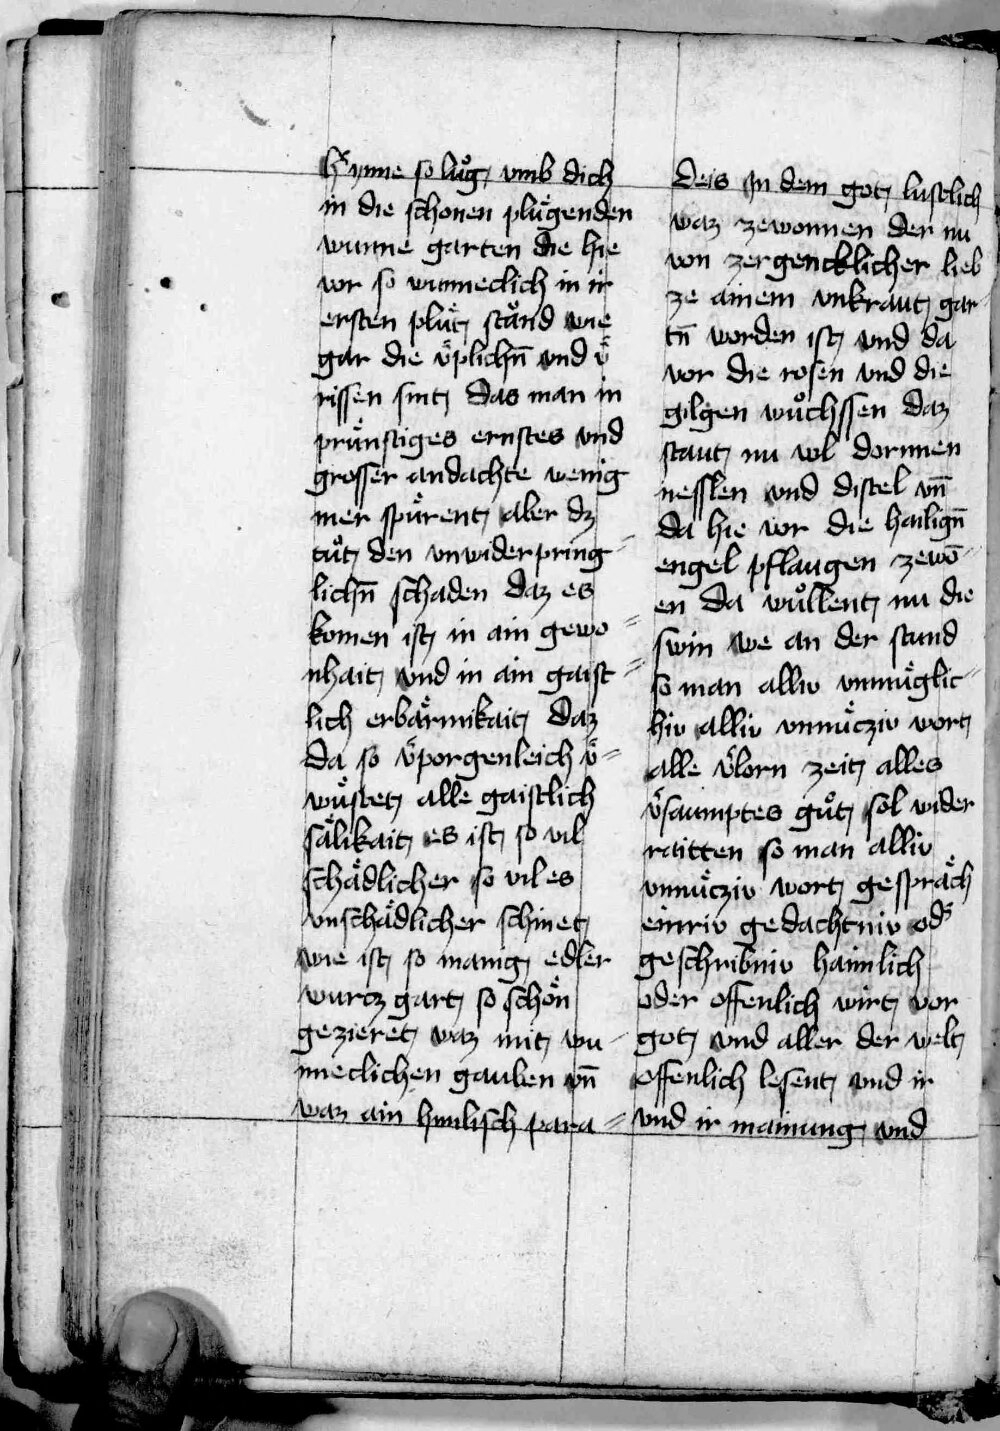 hynne so lůg vmb dich
in die schonen plůgenden
wunne garten die hie
vor so wunneclich in ir
ersten plůt stůnd wie
gar die v̈plichn̄ vnd v̈
rissen sint das man in
prünstiges ernstes vnd
grosser andachte wenig
mer spürent aber dz
tůt den vnwiderpring
lichn̄ schaden daz es
komen ist in ain gewo
nhait vnd in ain gaist
lich erbärmikait daz
da so v̈porgenleich v̈
wüstet alle gaistlich
sälikait es ist so vil
schädlicher so vil es
vnschädlicher schinet
wie ist so manig edler
wurcz gart so schön
gezieret waz mit wu
nneclichen gauben vn̄
waz ain himlisch para
deis In dem got lustlich
waz zewonnen der nu
von zergencklicher lieb
ze ainem vnkraut gar
tn̄ worden ist vnd da
vor die rosen vnd die
gilgen wůchssen daz
staut nu vol dornnen
nesslen vnd distel vn̄
da hie vor die hailign̄
engel pflaugen zewō
en da wůllent nu die
swin we an der stund
so man alliv vnmüglic
hiv alliv vnnücziv wort
alle v̈lorn zeit alles
v̈saumptes gůt sol wider
raitten so man alliv
vnnücziv wort gespräch
einriv gedachtniv od
geschribniv haimlich
oder offenlich wirt vor
got vnd aller der welt
offenlich lesent vnd ir
vnd ir mainung vnd